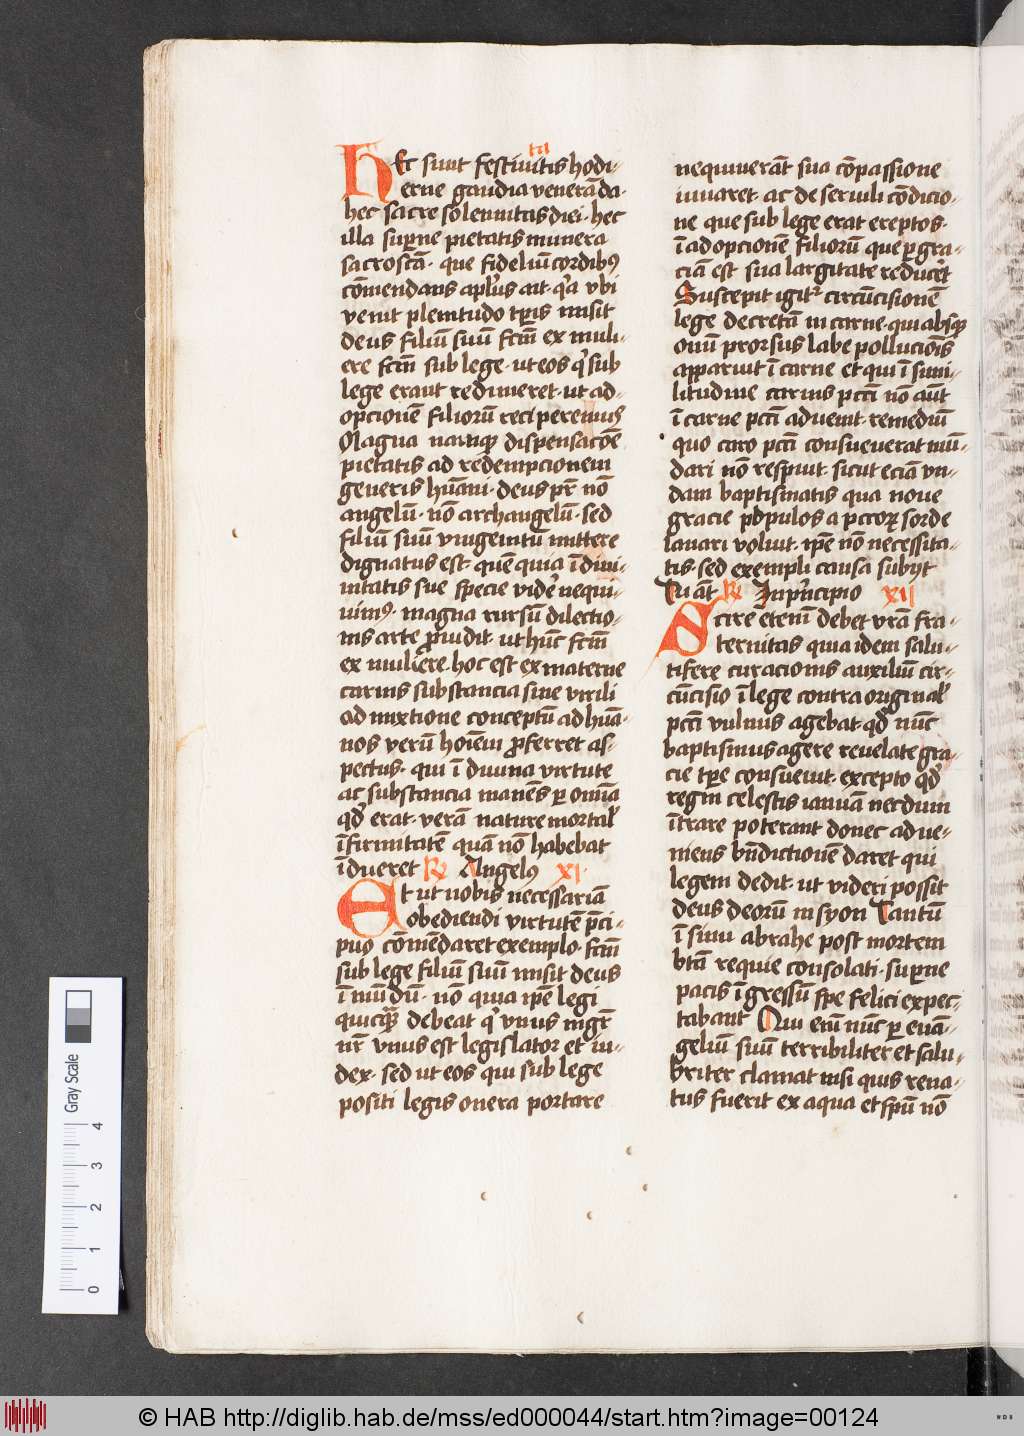 Hec sunt festiuitatis hodi-
erne gaudia venerāda·
hec sacre solennitas diei· hec
illa sup̄ne pietatis munera
sacroscā· que fideliū cordibꝰ
cōmendans aplūs ait· qꝛa vbi
venit plenitudo tp̄is misit
deus filiū suū fcm̄ ex muli-
ere fcm̄ sub lege· ut eos qͥ sub
lege erant redimeret· ut ad-
opcionē filiorū reciperemus
Magna namqꝫ dispensacōe
pietatis ad redempcionem
generis hūani· deus pr̄ nō
angelū· nō archangelū· sed
filiū suū vnigenitū mittere
dignatus est· quē quia ī diui-
nitatis sue specie videre nequi-
uimꝰ· magna rursū dilectio-
nis arte ꝓuidit ut hūc fcm̄
ex muliere· hoc est ex materne
carnis substancia sine virili
ad mixtione conceptū ad huā-
nos verū hoīem ꝓferret as-
pectus· qui ī diuina virtute
ac substancia manēs ꝑ omīa
qd̓ erat· verā nature mortal̓
īfirmitatē quā nō habebat
īdueret R̄ Angelus xi
Et ut nobis necessariā
obediendi virtutē p̄ci-
puo cōmēdaret exemplo· fcm̄
sub lege filiū suū misit deus
ī mūdū· nō quia ip̄e legi
quicqͣꝫ debeat qͥ vnus mgr̄
nr̄ vnus est legislator et iu-
dex· sed ut eos qui sub lege
positi legis onera portare
nequiuerāt sua cōpassione
iuuaret· ac de seruili cōdicio-
ne que sub lege erat ereptos·
ī adopcionē filiorū que ꝑ gra-
ciā est sua largitate reducēt
Suscepit igitᷣ circūcisionē
lege decretā in carne· qui absqꝫ
omī prorsus labe pollucionīs
apparuit ī carne et qui ī simi-
litudine carnis pcc̄i nō aūt
ī carne pcc̄i aduenit· remediū
quo caro pcc̄i consueuerat mū-
dari nō respuit· sicut eciā vn-
dam baptismatis qua noue
gracie populos a pctōrꝫ sorde
lauari voluit· ip̄e nō necessita-
tis· sed exempli causa subijt
Tu aūt R̄ In p̓ncipio xij
Scire etenī debet vrā fra-
ternitas quia idem salu-
tifere curacionis auxiliū cir-
cūcisio ī lege contra original̓
pcc̄i vulnus agebat· qd̓ nūc
baptismus agere reuelate gra-
cie tp̄e consueuit· excepto qd̓
regni celestis ianuā necdum
ītrare poterant donec adue-
niens bn̄dictionē daret qui
legem dedit· ut videri possit
deus deorū in syon Tantū
ī sinu abrahe post mortem
btā̄ requie consolati· sup̄ne
pacis īgressū spe felici expec-
tabant Qui enī nūc ꝑ euā-
geliū suū terribiliter et salu-
briter clamat nisi quis rena-
tus fuerit ex aqua et spū nō
Gray Scale
0 1 2 3 4
© HAB http://diglib.hab.de/mss/ed000044/start.htm?image=00124